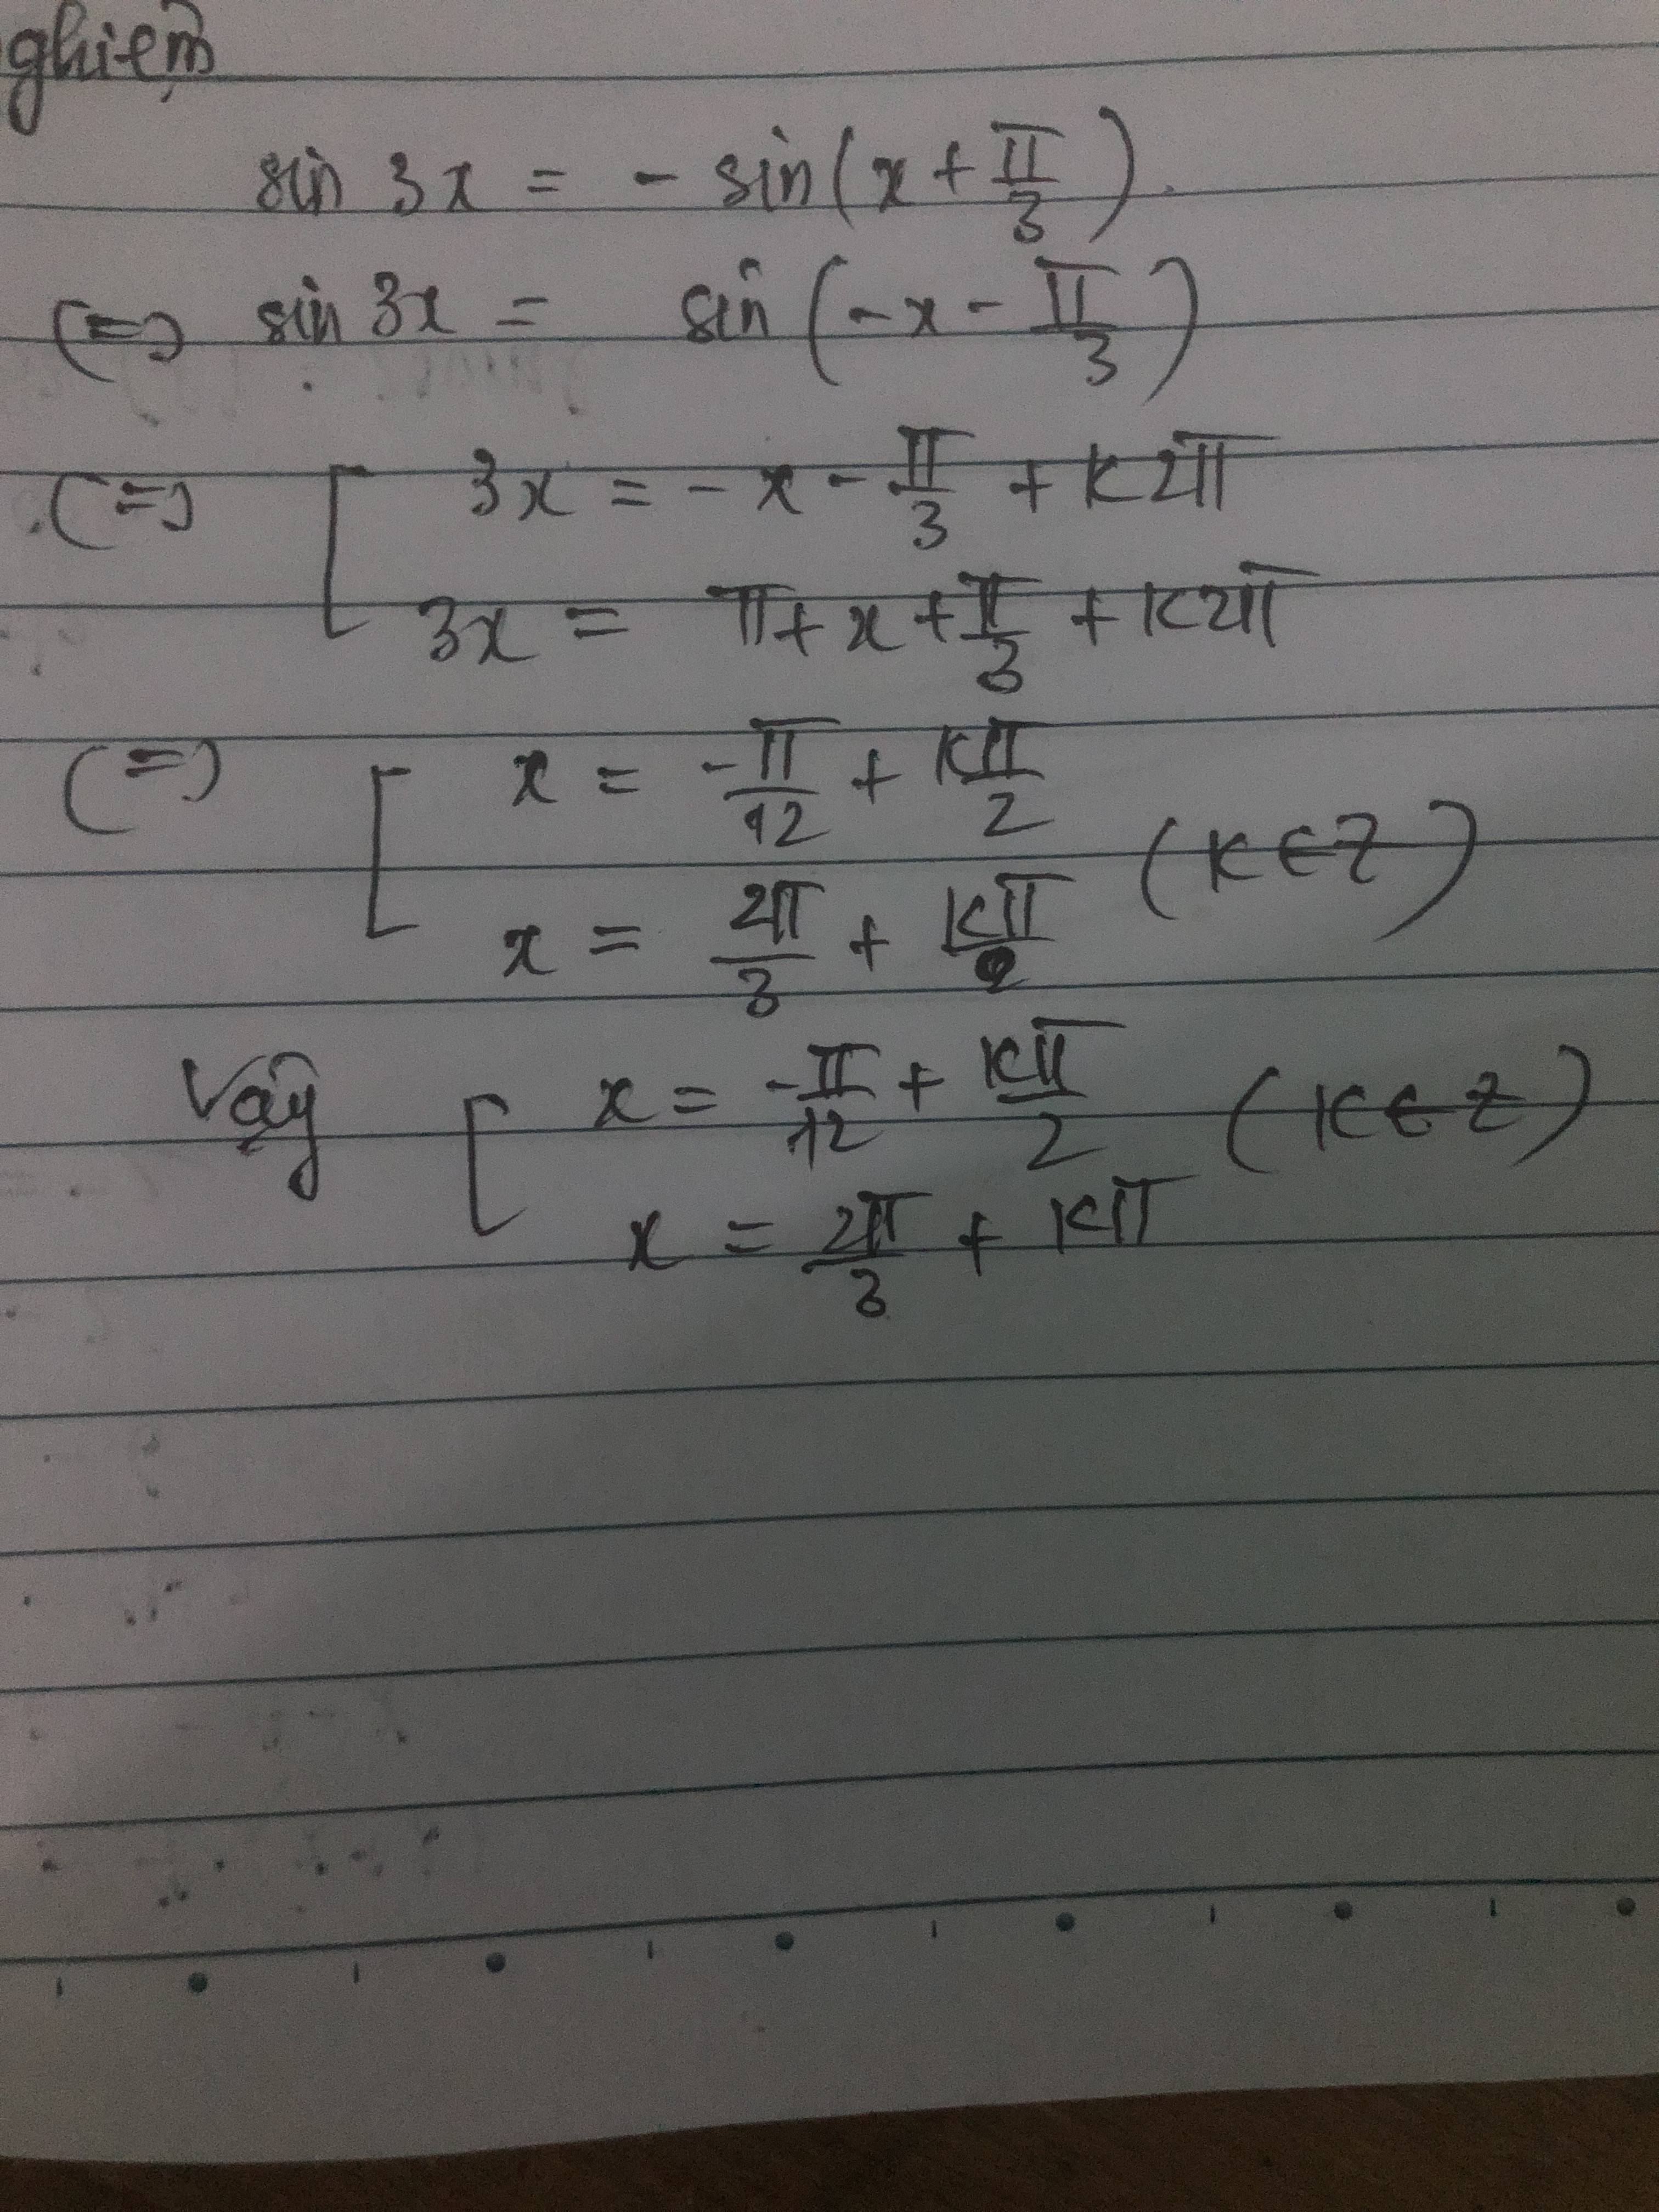 nghiệm
sin 3x = - sin(x + π/3).
(=) sin 3x = sin(-x - π/3)
(=) [ 3x = -x - π/3 + k2π
3x = π + x + π/3 + k2π
(=) [ x = -π/12 + kπ/2
x = 2π/3 + kπ/2 (k ∈ Z)
Vậy [ x = -π/12 + kπ/2 (k ∈ Z)
x = 2π/3 + kπ